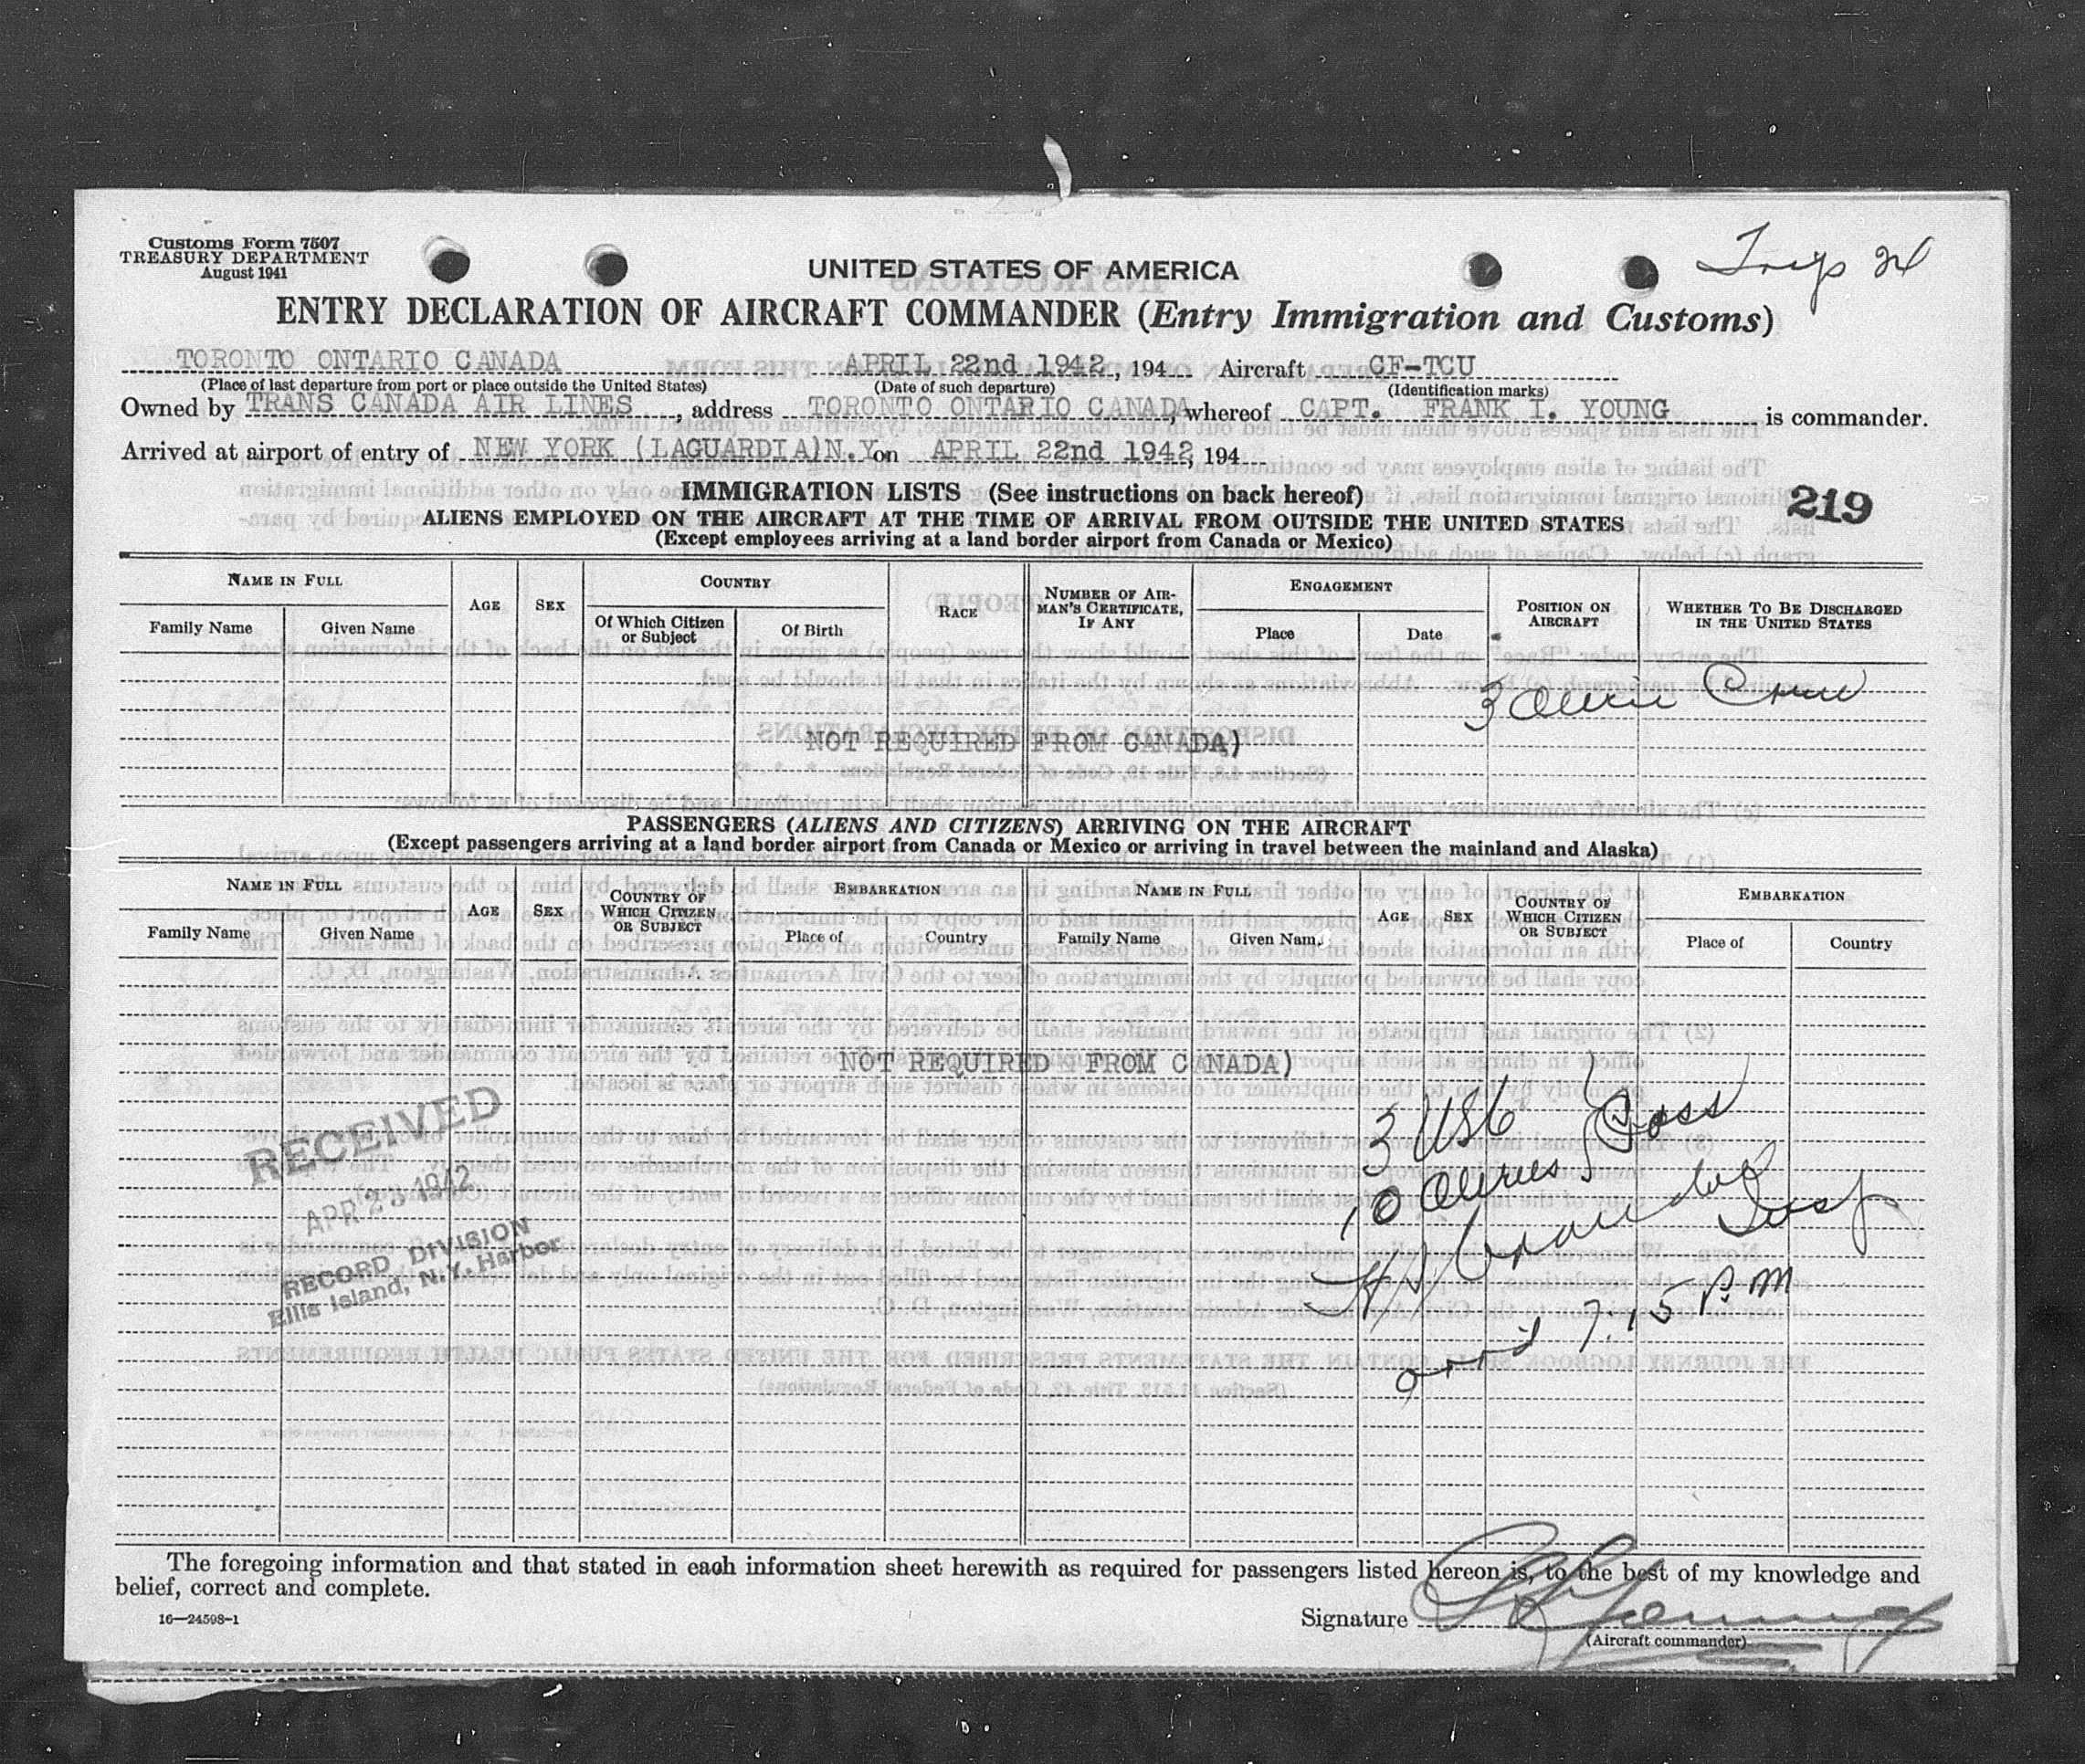 Customs Form 7507
TREASURY DEPARTMENT
August 1941
UNITED STATES OF AMERICA
Trip 24
ENTRY DECLARATION OF AIRCRAFT COMMANDER (Entry Immigration and Customs)
TORONTO ONTARIO CANADA APRIL 22nd 1942, 194 Aircraft CF-TCU
(Place of last departure from port or place outside the United States) (Date of such departure) (Identification marks)
Owned by TRANS CANADA AIR LINES, address TORONTO ONTARIO CANADA, whereof CAPT. FRANK I. YOUNG is commander.
Arrived at airport of entry of NEW YORK (LAGUARDIA)N.Y. on APRIL 22nd 1942, 194
IMMIGRATION LISTS (See instructions on back hereof)
219
ALIENS EMPLOYED ON THE AIRCRAFT AT THE TIME OF ARRIVAL FROM OUTSIDE THE UNITED STATES
(Except employees arriving at a land border airport from Canada or Mexico)
NAME IN FULL AGE SEX COUNTRY RACE NUMBER OF AIRMAN'S CERTIFICATE, IF ANY ENGAGEMENT POSITION ON AIRCRAFT WHETHER TO BE DISCHARGED IN THE UNITED STATES
Family Name Given Name Of Which Citizen or Subject Of Birth Place Date
3 Alien Crew
NOT REQUIRED FROM CANADA)
PASSENGERS (ALIENS AND CITIZENS) ARRIVING ON THE AIRCRAFT
(Except passengers arriving at a land border airport from Canada or Mexico or arriving in travel between the mainland and Alaska)
NAME IN FULL AGE SEX COUNTRY OF WHICH CITIZEN OR SUBJECT EMBARKATION NAME IN FULL AGE SEX COUNTRY OF WHICH CITIZEN OR SUBJECT EMBARKATION
Family Name Given Name Place of Country Family Name Given Name Place of Country
NOT REQUIRED FROM CANADA)
3 USC
10 Aliens Pass
Insp
arrd 7.15 P.M
RECEIVED
APR 23 1942
RECORD DIVISION
Ellis Island, N.Y. Harbor
The foregoing information and that stated in each information sheet herewith as required for passengers listed hereon is, to the best of my knowledge and
belief, correct and complete.
16—24598-1
Signature
(Aircraft commander)